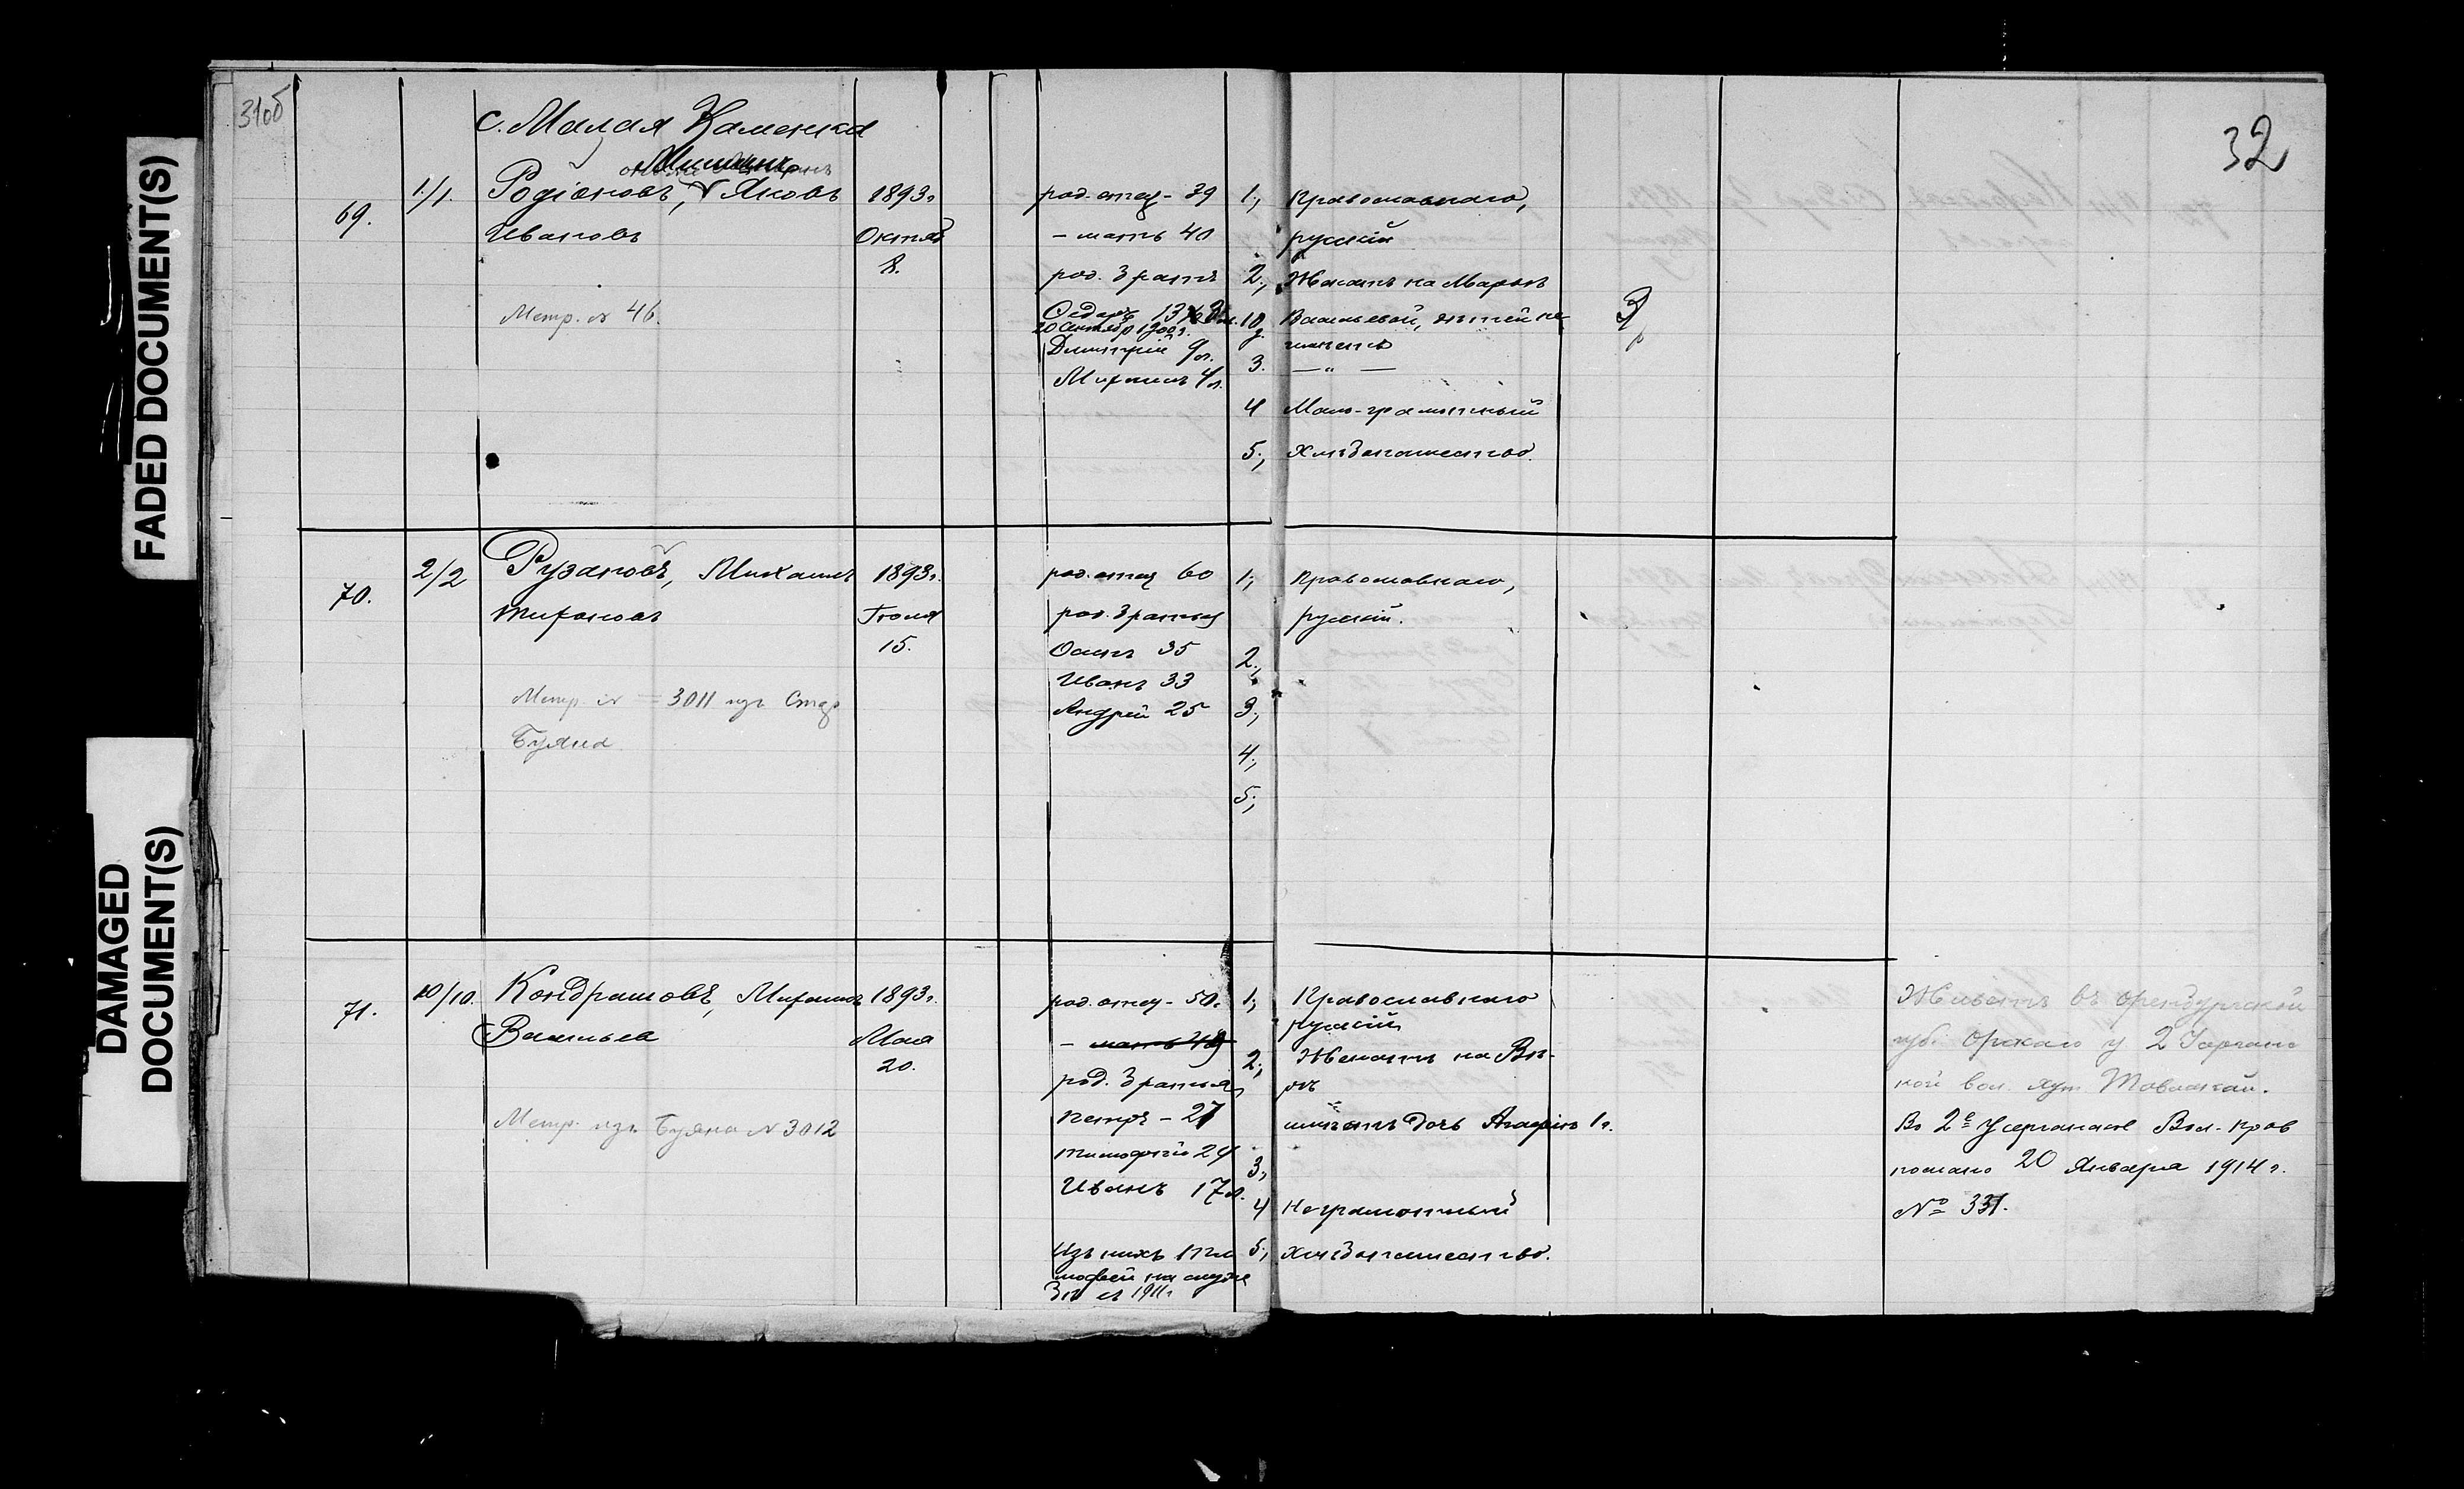 FADED DOCUMENT(S)
DAMAGED DOCUMENT(S)
31об
32
с. Малая Каменка
69.
1/1.
Родіоновъ, Яковъ
Ивановъ
Метр. № 46.
1893г.
Октяб
8.
род. отец - 39
- мать 40
род. братъ
Федоръ 13
20 Октября 1900г.
Димитрій 9л.
Михаилъ 4л.
1, Православнаго,
русскій
2, Женатъ на Марьѣ
Васильевой, дѣтей не
имѣетъ
3. — " —
4 Мало-грамотный
5, Хлѣбопашество.
70.
2/2
Рузановъ, Михаилъ
Тифановъ
Метр. № = 3011 изъ Стар
Буяна
1893г.
Іюля
15.
род. отец 60
род. братья
Осипъ 35
Иванъ 33
Андрей 25
1, Православнаго,
русскій.
2,
3,
4,
5,
71.
10/10.
Кондрашовъ, Михаилъ
Васильевъ
Метр. изъ Буяна № 3012
1893г.
Мая
20.
род. отец - 50.
- мать 48
род. братья
Петръ - 27
Тимофей 24
Иванъ 17л.
Изъ нихъ Тимо
фей на службе
съ 1911г
1, Православнаго
русскій
2, Женатъ на Вѣ-
рѣ
имѣетъ дочь Агафію 1г.
3,
4 Неграмотный
5, Хлѣбопашество.
Живетъ въ Оренбургской
губ. Орскаго у 2 Усерган
кой вол. хут.
Во 2е Усерганское Вол. прав
послано 20 Января 1914г.
№ 331.